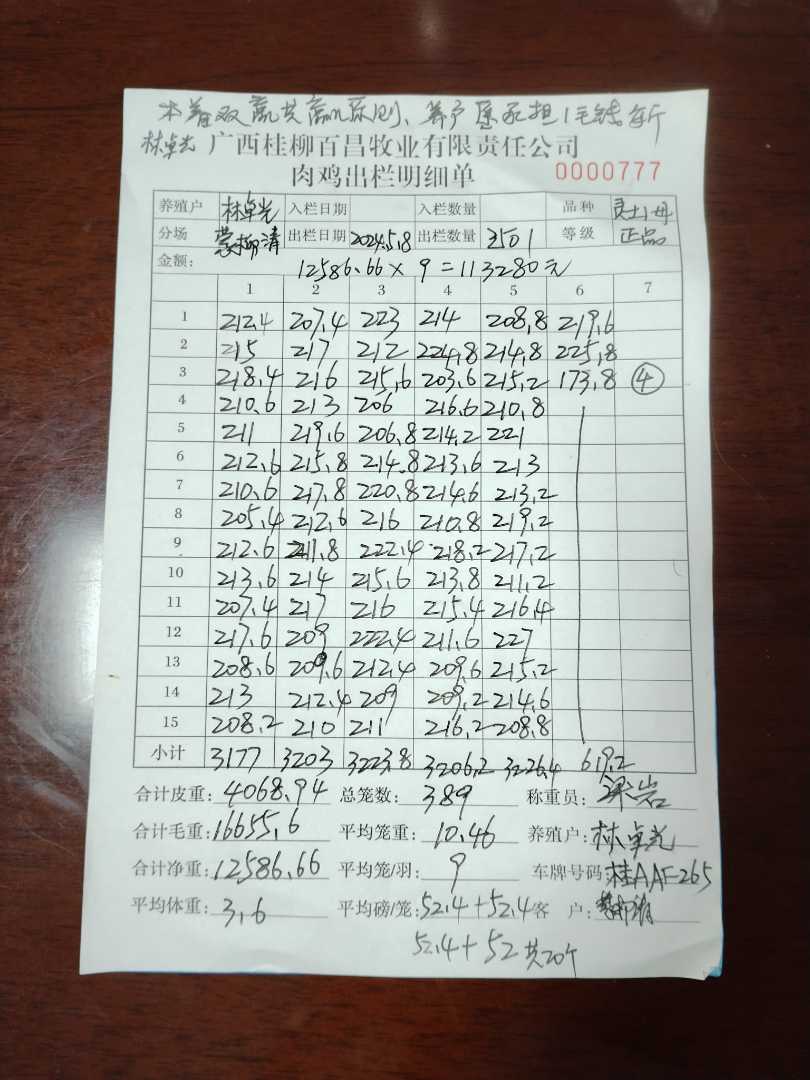 本着双赢共赢原则、养户愿承担1毛钱每斤
林卓光 广西桂柳百昌牧业有限责任公司
肉鸡出栏明细单 0000777
养殖户 林卓光 入栏日期 入栏数量 品种 土1母
分场 柳清 出栏日期 2024.5.8 出栏数量 3501 等级 正品
金额: 12586.66×9=113280元
1 2 3 4 5 6 7
1 212.4 207.4 223 214 208.8 219.6
2 215 217 212 224.8 214.8 225.8
3 218.4 216 215.6 203.6 215.2 173.8 ④
4 210.6 213 206 216.6 210.8
5 211 219.6 206.8 214.2 221
6 212.6 215.8 214.8 213.6 213
7 210.6 217.8 220.8 214.6 213.2
8 205.4 212.6 216 210.8 219.2
9 212.6 211.8 222.4 218.2 217.2
10 213.6 214 215.6 213.8 211.2
11 207.4 217 216 215.4 216.4
12 217.6 209 222.4 211.6 227
13 208.6 209.6 212.4 209.6 215.2
14 213 212.4 209 209.2 214.6
15 208.2 210 211 216.2 208.8
小计 3177 3203 3223.8 3206.2 3226.4 619.2
合计皮重: 4068.94 总笼数: 389 称重员: 岩
合计毛重: 16655.6 平均笼重: 10.46 养殖户: 林卓光
合计净重: 12586.66 平均笼/羽: 9 车牌号码: 桂AAF265
平均体重: 3.6 平均磅/笼: 52.4+52.4 客 户:
52.4+52 共20个